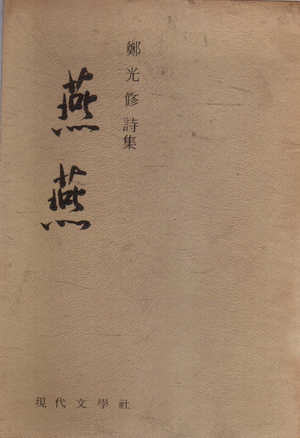 鄭光修 詩集
燕燕
現代文學社